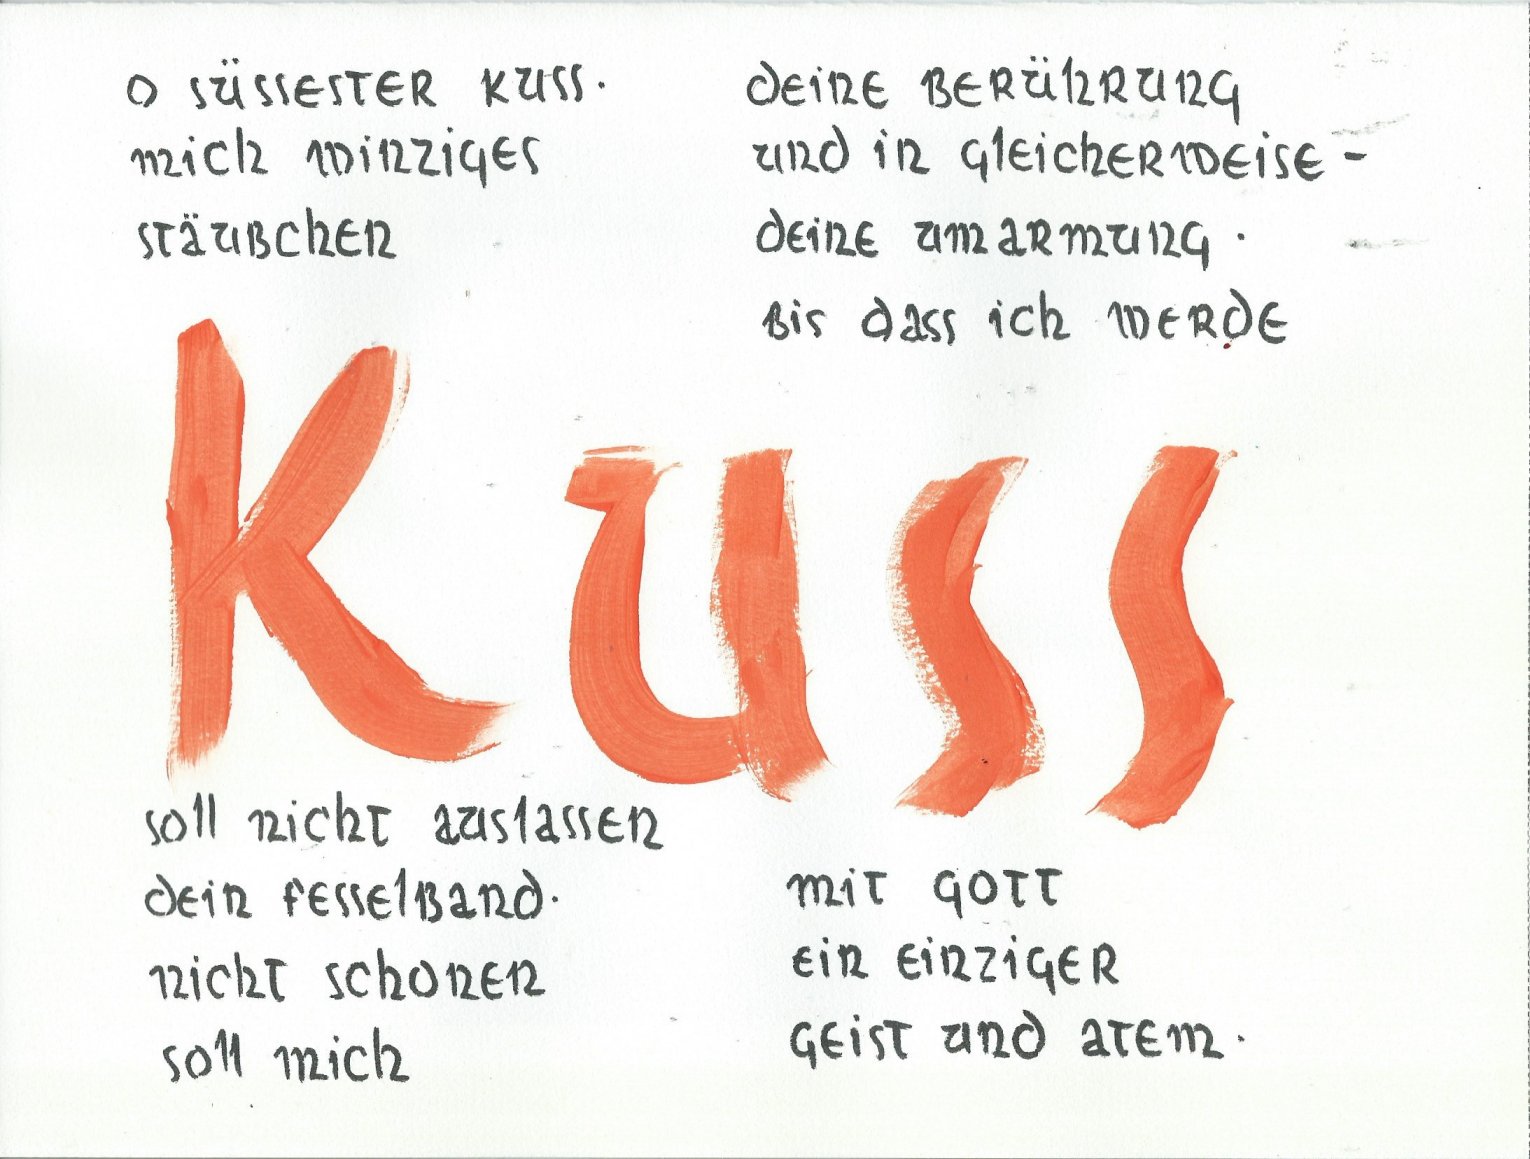 O SÜSSESTER KUSS.
mich winziges
STÄUBchen
soll nicht auslassen
dein fesselBand.
nicht schonen
soll mich
deine BERÜhRUNG
und in gleicherweise -
deine umarmung.
Bis dass ich werde
Kuss
mit GOTT
ein einziger
Geist und atem.